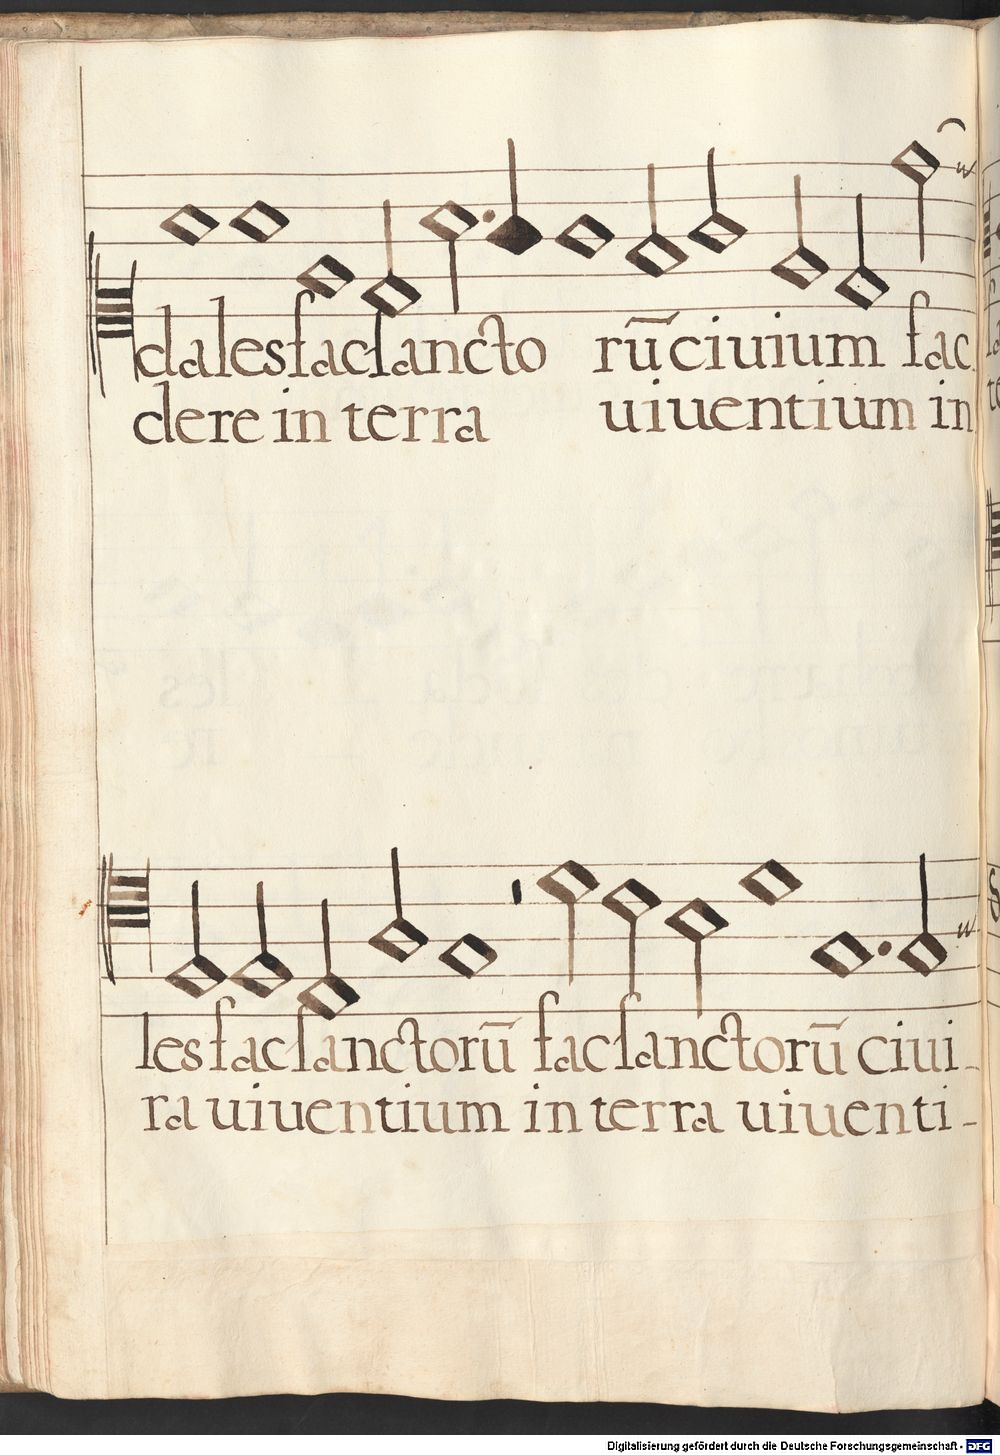 dales fac sancto rū ciuium fac
dere in terra uiuentium in
les fac sanctorū fac sanctorū ciui-
ra uiuentium in terra uiuenti-
Digitalisierung gefördert durch die Deutsche Forschungsgemeinschaft - DFG